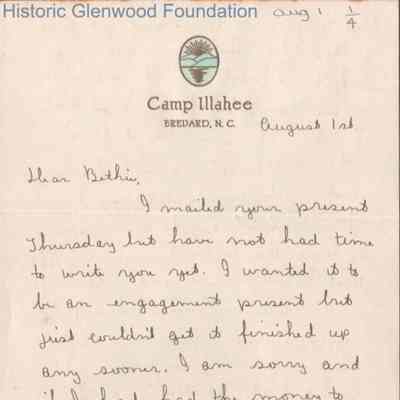 Historic Glenwood Foundation
Aug 1 1/4
Camp Illahee
BREVARD, N. C.
August 1st
Dear Bethie,
I mailed your present
Thursday but have not had time
to write you yet. I wanted it to
be an engagement present but
just couldn't get it finished up
any sooner. I am sorry and
if I had had the money to